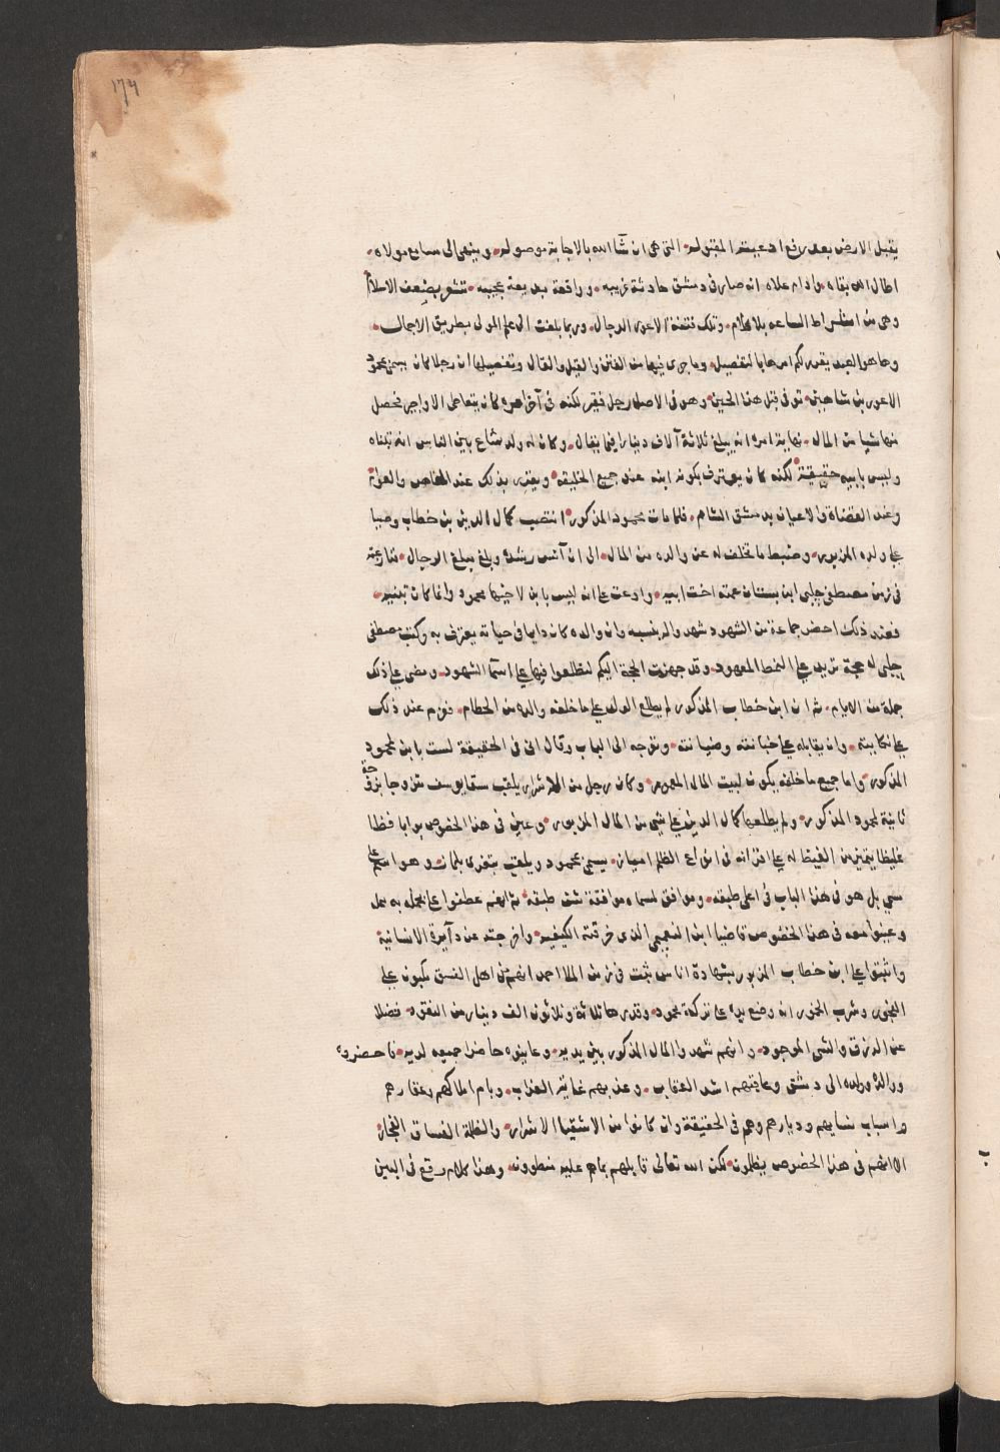 ١٧٣
يقبل الارض بعد رفع ادعيته المقبوله التى هى ان شآ الله بالاجابة موصوله وينهى الى مسامع مولاه
اطال الله بقاه وادام علاه انه صار فى دمشق حادثة غريبه وواقعة بديعة عجيبه تشعر بضعف الاسلام
وهى من اشراط الساعه بلا كلام وتلك فتنة الاعور الدجال وربما بلغت الى علم المولى بطريق الاجمال
وها هو العبد يقرر لكم امرها بالتفصيل وما جرى فيها من الفتن والقيل والقال وتفصيلها ان رجلا كان يسمى محمود
الاعور بن شاهين توفى قبل هذا الحين وهو فى الاصل رجل فقير لكنه فى آخر عمره كان يتعاطى الاواجر فحصل
منها شيا من المال نهاية امره انه يبلغ ثلاثة آلاف دينار فيما يقال وكان له ولد شاع بين الناس انه تبناه
وليس بابيه حقيقة لكنه كان يعترف بكونه ابنه عند جميع الخليقه ويقر بذلك عند الخاص والعوام
وعند القضاة والاعيان بدمشق الشام فلما مات محمود المذكور انتصب كمال الدين بن خطاب وصيا
على ولده المزبور وضبط ما تخلف له عن والده من المال الى ان آنس رشده وبلغ مبلغ الرجال فنازعته
فى زمن مصطفى چلبى ابن بستان عمته اخت ابيه وادعت على انه ليس بابن لاخيها محمود وانما كان تبنيه
فعند ذلك احضر جماعة من الشهود شهدوا له بنسبه وان والده كان دايما فى حياته يعترف به وكتب مصطفى
چلبى له حجة بذلك على النمط المعهود وقد جهزت الحجة اليكم لتطلعوا فيها على اسمآ الشهود ومضى على ذلك
جملة من الايام ثم ان ابن خطاب المذكور لم يطلع الولد على ما خلفه والده من الحطام فعزم عند ذلك
على نكايته وان يقابله على خيانته وتوجه الى الباب وقال انى فى الحقيقة لست بابن لمحمود
المذكور واما جميع ما خلفه يكون لبيت المال المعمور وكان رجل من الاشرار يلقب سقا يوسف متزوجا بزوجة
ثانية لمحمود المذكور ولم يطلعها كمال الدين على شى من المال المزبور وعين فى هذا الخصوص بوابا فظا
غليظا يتميز من الغيظ له على اقرانه فى انواع الظلم يسمى محمود ويلقب وهو اسم على
مسمى بل هو فى هذا الباب فى اعلى طبقه وموافق لمسماه موافقة شن طبقه ثم انهم عطفوا على
وعينوا معه فى هذا الخصوص قاضيا ابن النعيمى الذى واخرجته عن دآيرة الانسانية
واثبتوا على ابن خطاب المزبور بشهادة اناس انهم من اهل الفسق مكبون على
الفجور وشرب الخمور انه وضع يده على تركة محمود وقدرها ثلاثة وثلاثون الف دينار من النقود فضلا
عن الرزق والشى الموجود وانهم شهدوا المال المذكور بين يديه وعاينوه حاضرا جميعه لديه فاحضروه
وولده الى دمشق وعاقبهم اشد العقاب وعذبهم غاية العذاب وباع املاكهم وعقارهم
واسباب نسايهم وديارهم وهم فى الحقيقة وان كانوا من الاشقيا الاشرار والظلمة الفساق الفجار
الا انهم فى هذا الخصوص يظلمون لكن الله تعالى قابلهم بما هم عليه منطوون وهذا كلام وقع فى البين